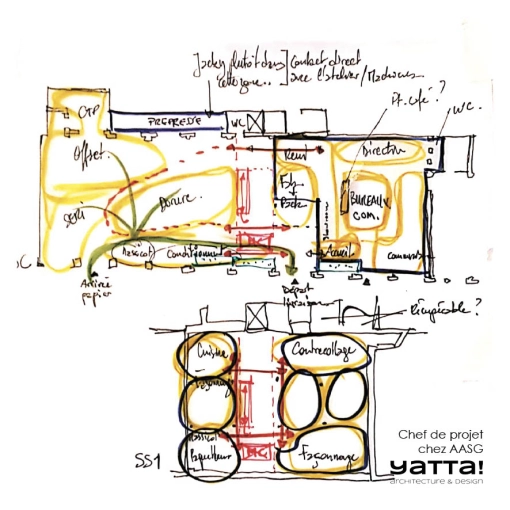 plutôt dans
Contact direct
avec l'atelier / Machines
Pt. Café ?
WC.
CTP
PREPRESSE
WC
Offset.
Réun
Direction
BUREAUX
COM.
Seri
Dorure.
Massicot
Conditionnemt
MC
Accueil
Arrivée
papier
Départ
livraison
Récupérable ?
Cuisine
Contrecollage
Massicot
MC
Façonnage
SS1
Chef de projet
chez AASG
YATTA!
ARCHITECTURE & DESIGN